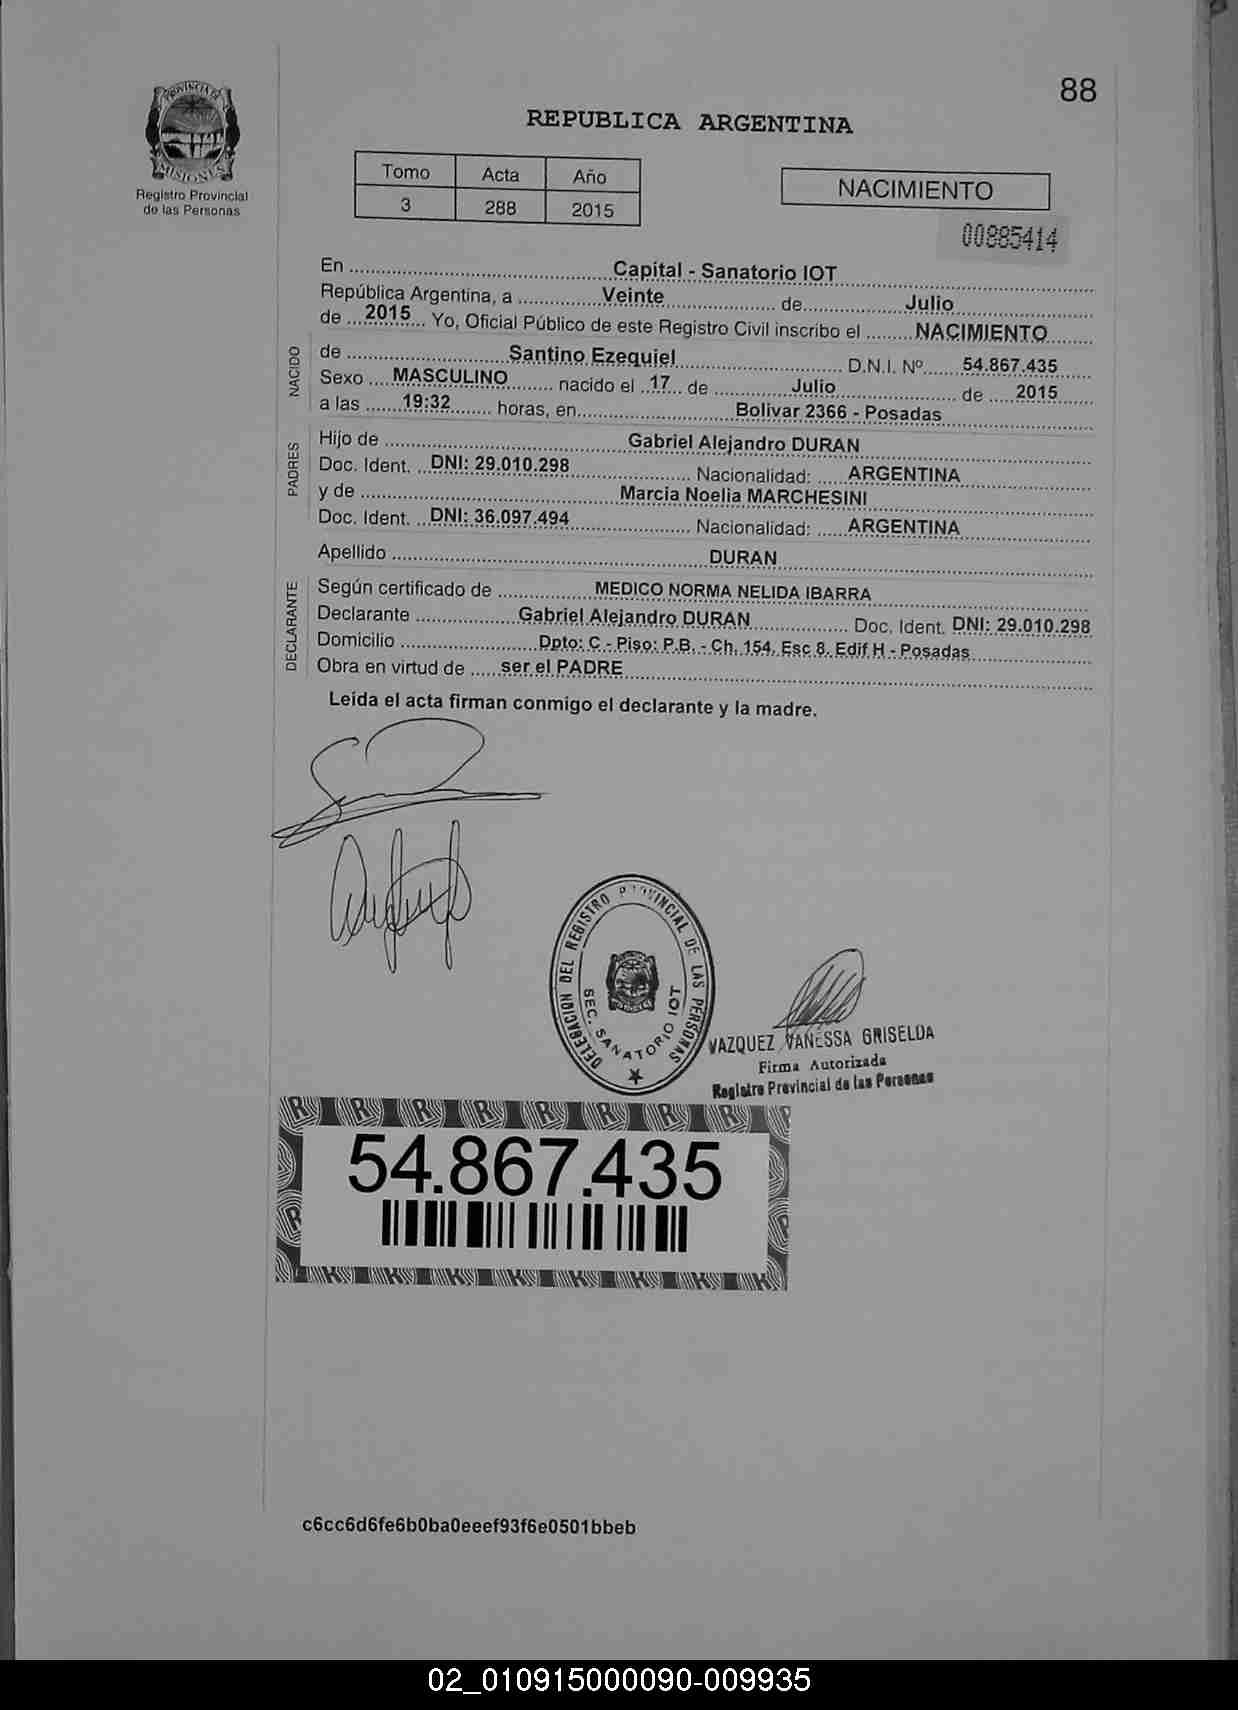 88
PROVINCIA DE
MISIONES
Registro Provincial
de las Personas
REPUBLICA ARGENTINA
Tomo Acta Año
3 288 2015
NACIMIENTO
00885414
En Capital - Sanatorio IOT
República Argentina, a Veinte de Julio
de 2015 Yo, Oficial Público de este Registro Civil inscribo el NACIMIENTO
NACIDO
de Santino Ezequiel D.N.I. Nº 54.867.435
Sexo MASCULINO nacido el 17 de Julio de 2015
a las 19:32 horas, en Bolivar 2366 - Posadas
PADRES
Hijo de Gabriel Alejandro DURAN
Doc. Ident. DNI: 29.010.298 Nacionalidad: ARGENTINA
y de Marcia Noelia MARCHESINI
Doc. Ident. DNI: 36.097.494 Nacionalidad: ARGENTINA
Apellido DURAN
DECLARANTE
Según certificado de MEDICO NORMA NELIDA IBARRA
Declarante Gabriel Alejandro DURAN Doc. Ident. DNI: 29.010.298
Domicilio Dpto: C - Piso: P.B. - Ch. 154, Esc 8. Edif H - Posadas
Obra en virtud de ser el PADRE
Leida el acta firman conmigo el declarante y la madre.
DELEGACION DEL REGISTRO PROVINCIAL DE LAS PERSONAS
SEC. SANATORIO IOT
VAZQUEZ VANESSA GRISELDA
Firma Autorizada
Registro Provincial de las Personas
54.867.435
c6cc6d6fe6b0ba0eeef93f6e0501bbeb
02_010915000090-009935